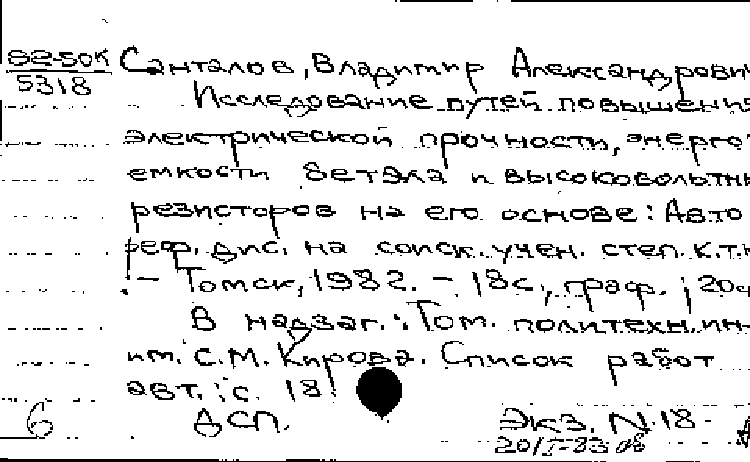 82-50к
5318
Санталов, Владимир Александрович
Исследование путей повышения
электрической прочности, энерго-
емкости бетэла и высоковольтн
резисторов на его основе: Авто
реф. дис. на соиск. учен. степ. к.т.н
- Томск, 1982. - 18с., граф.; 20с
В надзаг.: Том. политехн. ин-
им. С.М. Кирова. Список работ
авт.: с. 18
6 ДСП. Экз. N 18
20/I-83